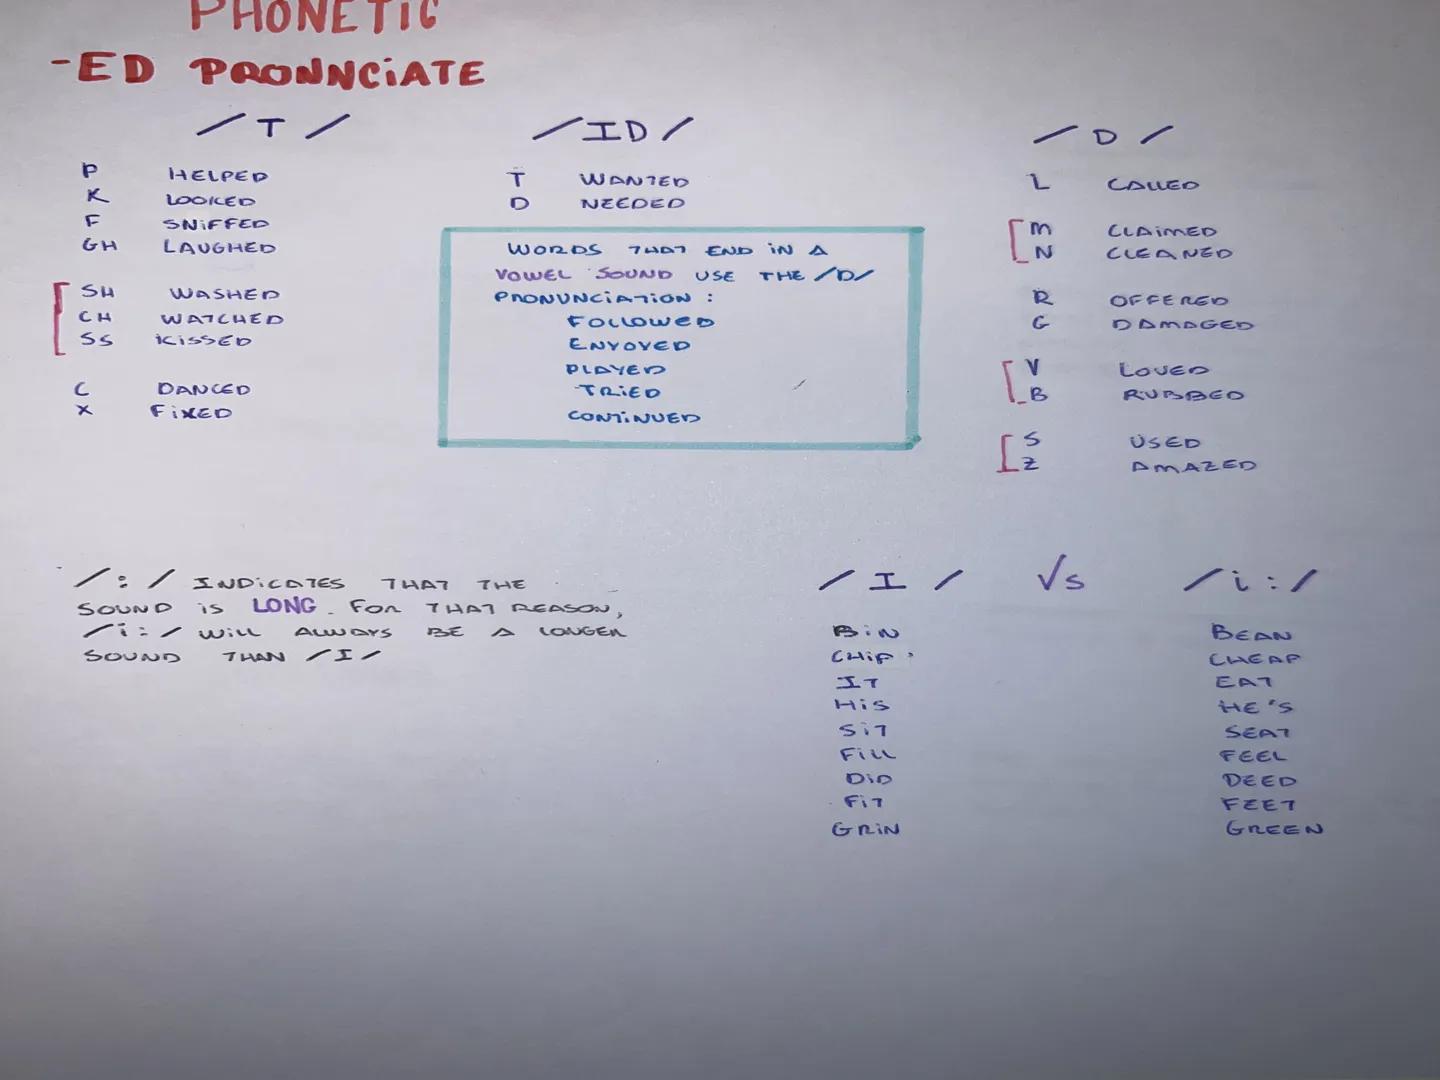 PHONETIC
-ED PRONNCiATE
/T/
P HELPED
K LOOKED
F SNiFFED
GH LAUGHED
SH WASHED
CH WATCHED
SS KiSSED
C DANCED
X FiXED
/ID/
T WANTED
D NEEDED
WORDS THAT END iN A
VOWEL SOUND USE THE /D/
PRONUNCiATiON :
FOLLOWED
ENYOYED
PLAYED
TRiED
CONTiNUED
/D/
L CALLED
M CLAiMED
N CLEANED
R OFFERED
G DAMAGED
V LOVED
B RUBBED
S USED
Z AMAZED
/:/ INDiCATES THAT THE
SOUND iS LONG. FOR THAT REASON,
/i:/ WiLL ALWAYS BE A LONGER
SOUND THAN /I/
/I/ Vs /i:/
BiN BEAN
CHiP CHEAP
IT EAT
HiS HE'S
SiT SEAT
FiLL FEEL
DiD DEED
FiT FEET
GRiN GREEN